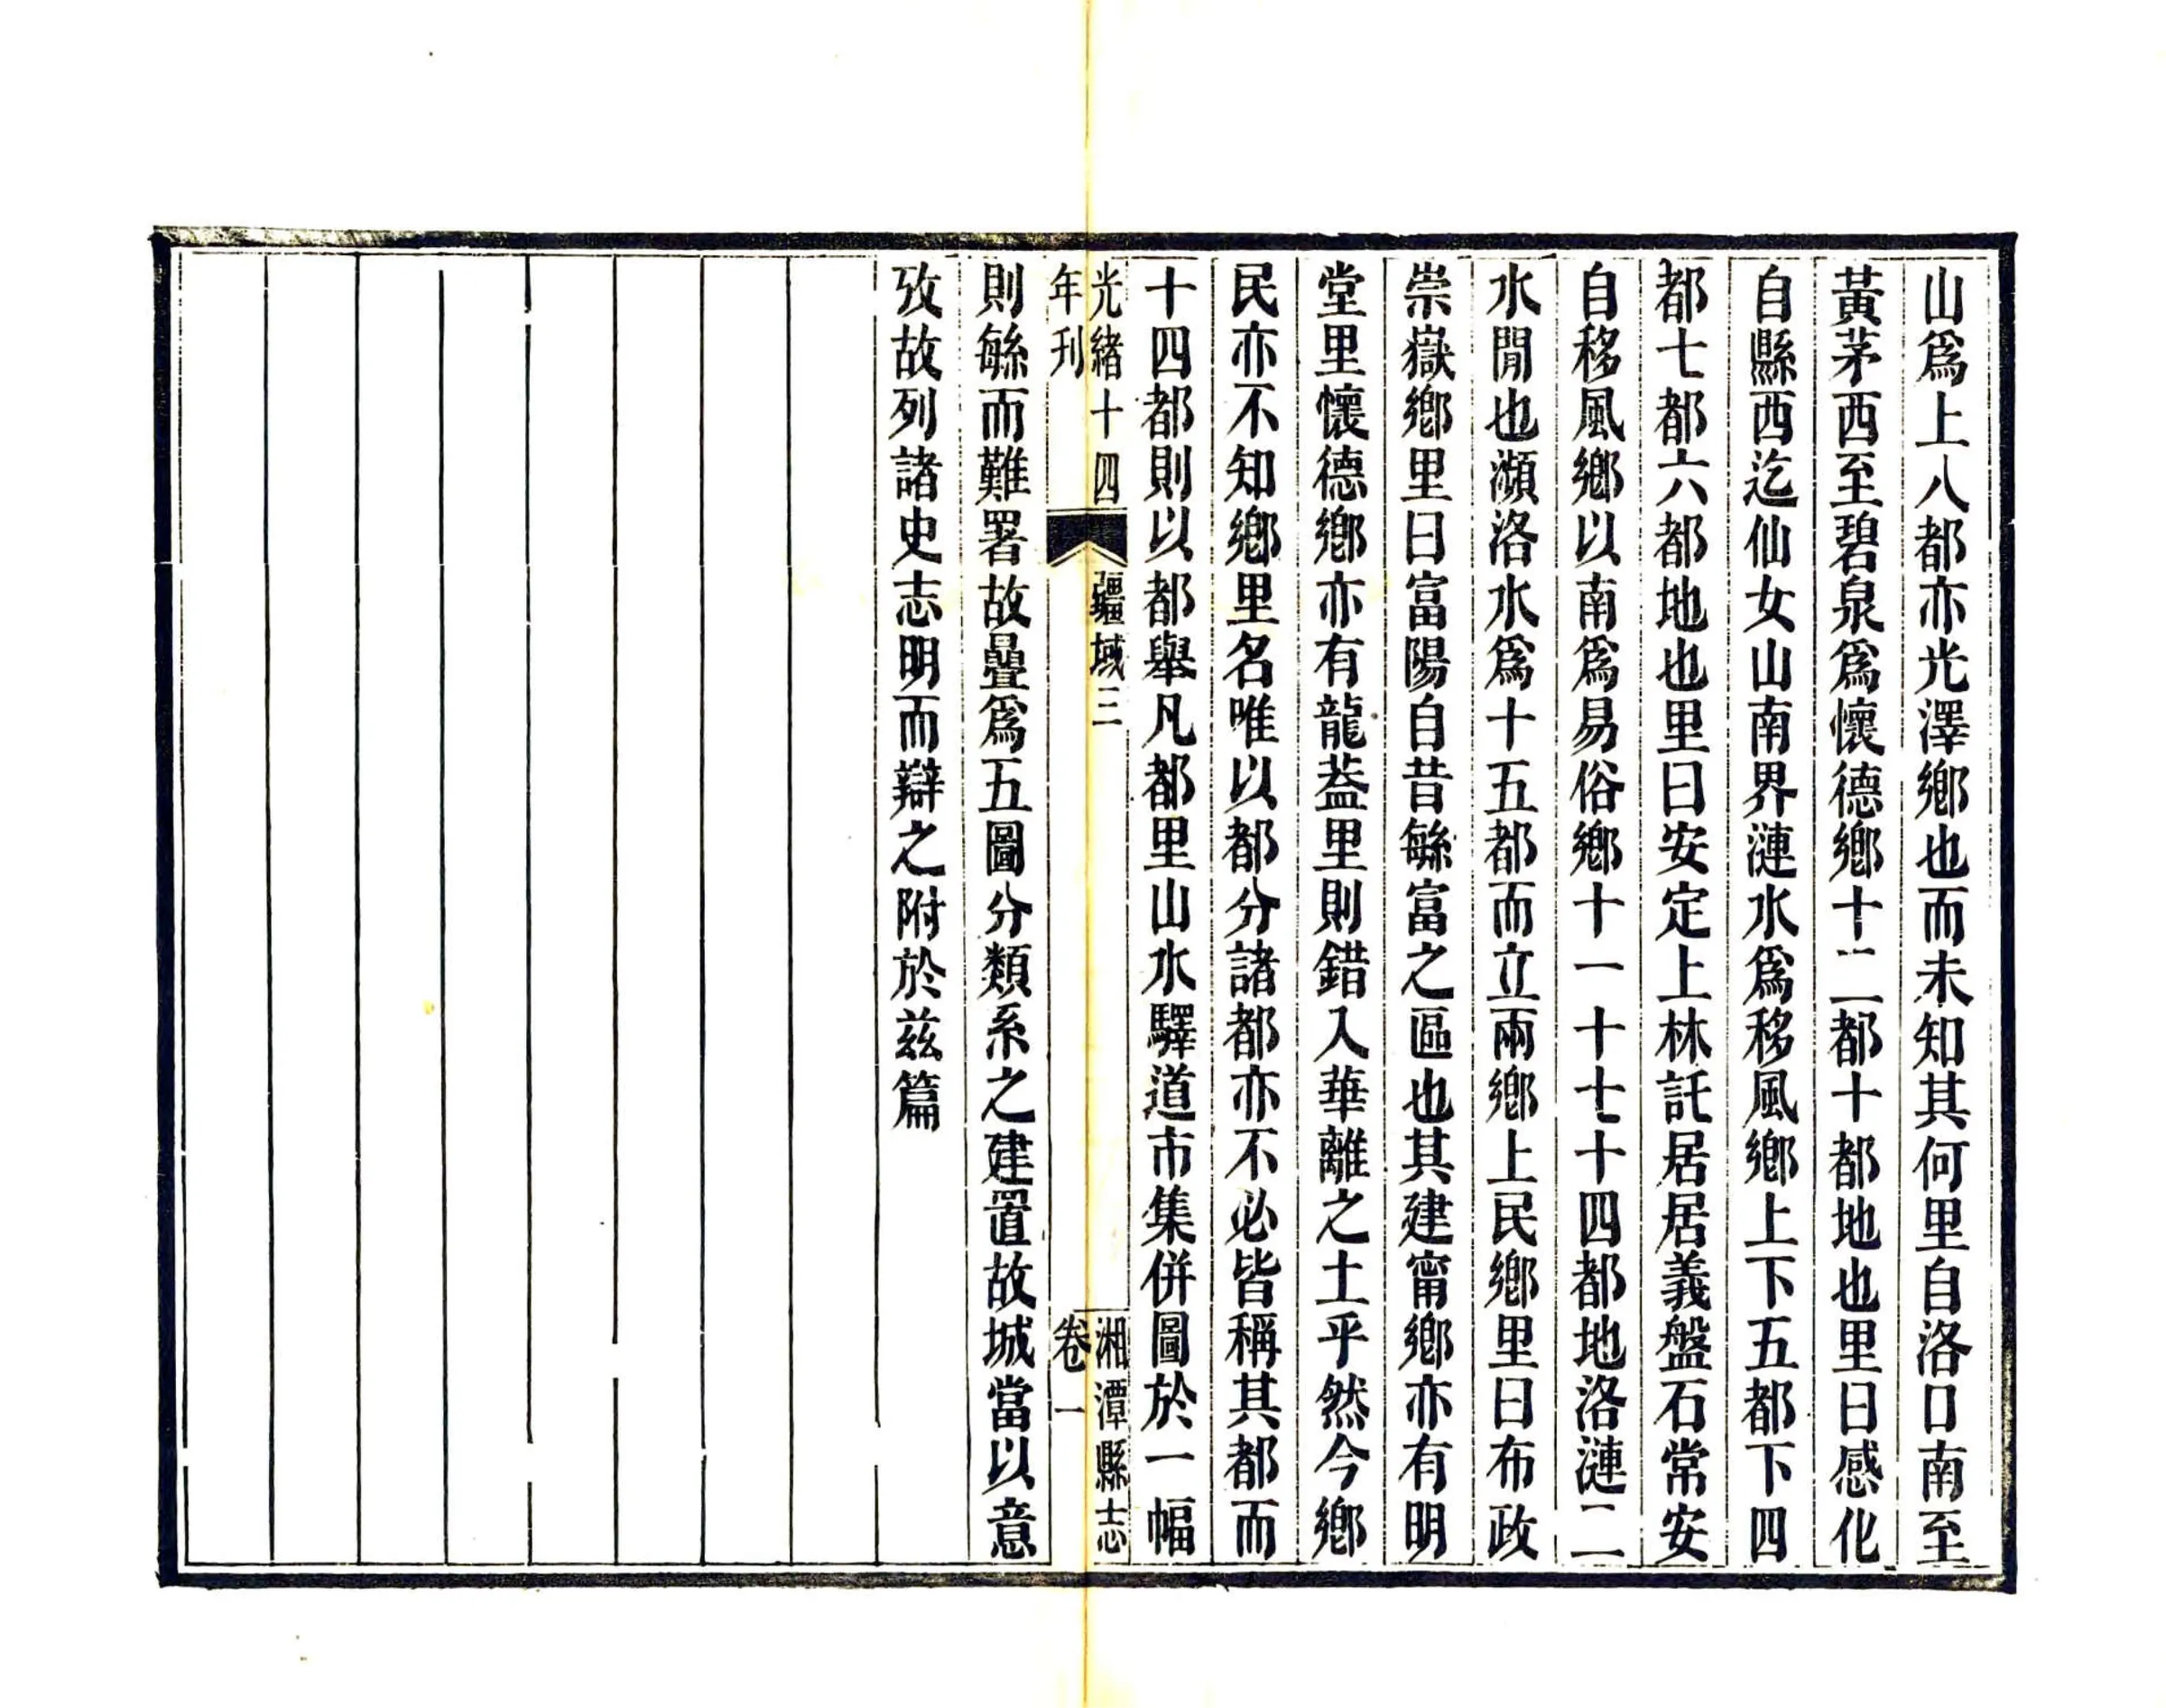 山爲上八都亦光澤鄉也而未知其何里自洛口南至
黃茅西至碧泉爲懷德鄉十一二都十都地也里曰感化
自縣西迄仙女山南界漣水爲移風鄉上下五都下四
都七都六都地也里曰安定上林託居居義盤石常安
自移風鄉以南爲易俗鄉十一十七十四都地洛漣二
水閒也瀕洛水爲十五都而立兩鄉上民鄉里曰布政
崇嶽鄉里曰富陽自昔緐富之區也其建甯鄉亦有明
堂里懷德鄉亦有龍葢里則錯入華離之土乎然今鄉
民亦不知鄉里名唯以都分諸都亦不必皆稱其都而
十四都則以都舉凡都里山水驛道市集併圖於一幅
光緒十四
年刊
疆域三
湘潭縣志
卷一
則緐而難署故曡爲五圖分類系之建置故城當以意
攷故列諸史志明而辯之附於兹篇